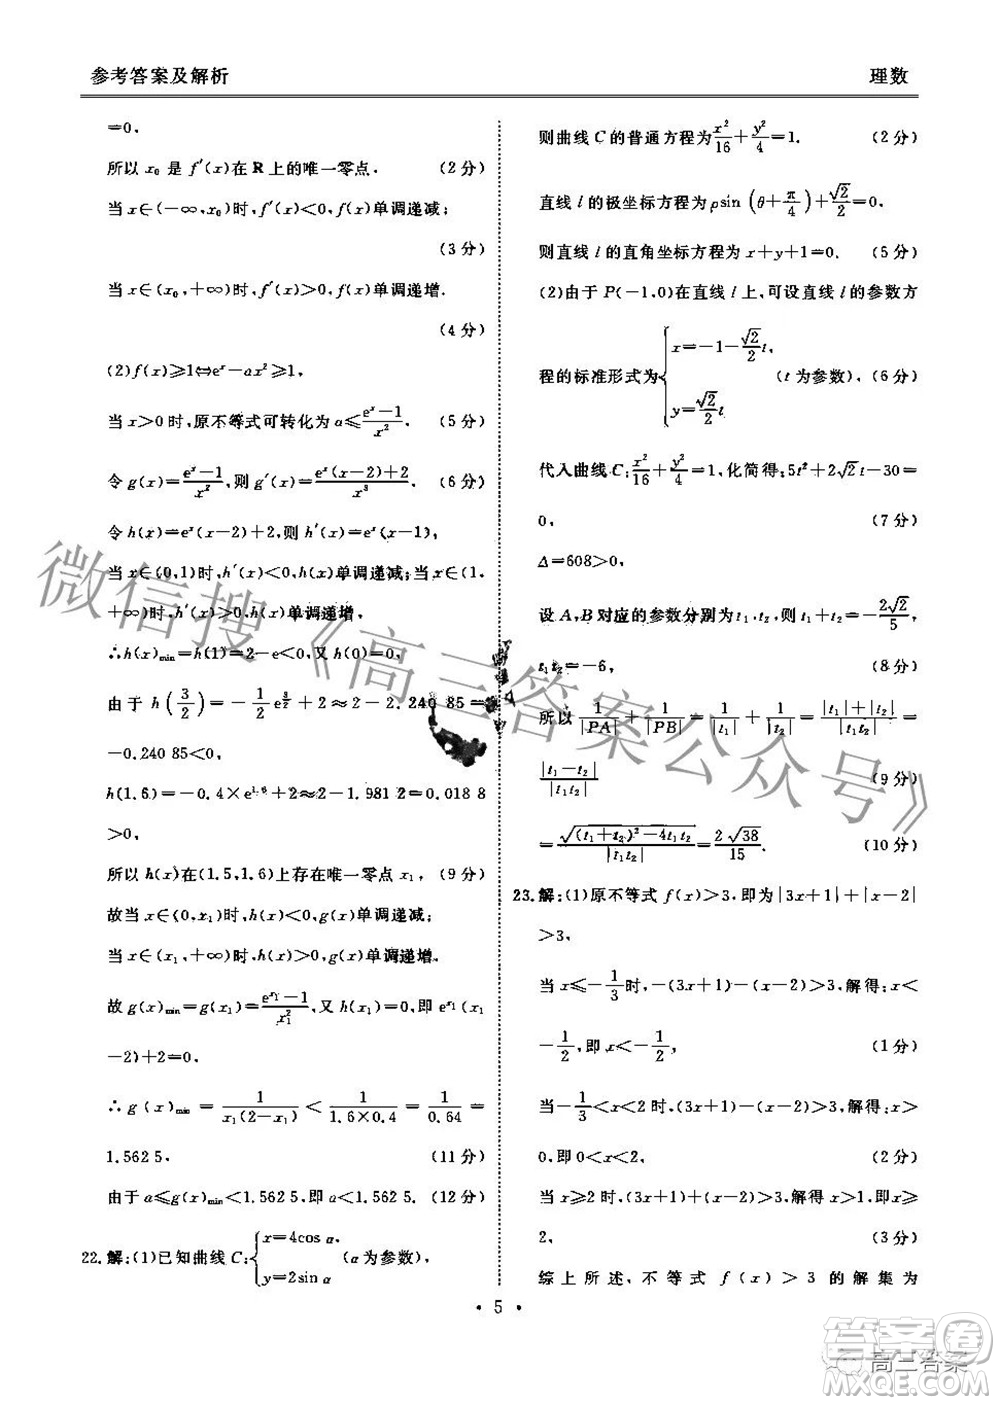 参考答案及解析
理数
=0,
所以 x₀ 是 f′(x)在 R 上的唯一零点. (2 分)
当 x∈(-∞,x₀)时,f′(x)<0,f(x)单调递减;
(3 分)
当 x∈(x₀,+∞)时,f′(x)>0,f(x)单调递增.
(4 分)
(2)f(x)≥1⇔eˣ-ax²≥1,
当 x>0 时,原不等式可转化为 a≤(eˣ-1)/x². (5 分)
令 g(x)=(eˣ-1)/x²,则 g′(x)=(eˣ(x-2)+2)/x³. (6 分)
令 h(x)=eˣ(x-2)+2,则 h′(x)=eˣ(x-1),
当 x∈(0,1)时,h′(x)<0,h(x)单调递减;当 x∈(1,
+∞)时,h′(x)>0,h(x)单调递增.
∴h(x)min=h(1)=2-e<0,又 h(0)=0,
由于 h(3/2)=-1/2 e^(3/2)+2≈2-2.240 85=
-0.240 85<0,
h(1.6)=-0.4×e^1.6+2≈2-1.981 2=0.018 8
>0,
所以 h(x)在(1.5,1.6)上存在唯一零点 x₁, (9 分)
故当 x∈(0,x₁)时,h(x)<0,g(x)单调递减;
当 x∈(x₁,+∞)时,h(x)>0,g(x)单调递增.
故 g(x)min=g(x₁)=(e^x₁-1)/x₁²,又 h(x₁)=0,即 e^x₁(x₁
-2)+2=0,
∴ g(x)min = 1/(x₁(2-x₁)) < 1/(1.6×0.4) = 1/0.64 =
1.562 5, (11 分)
由于 a≤g(x)min<1.562 5,即 a<1.562 5. (12 分)
22.解:(1)已知曲线 C:{x=4cos α, y=2sin α (α为参数),
则曲线 C 的普通方程为x²/16+y²/4=1. (2 分)
直线 l 的极坐标方程为 ρsin(θ+π/4)+√2/2=0,
则直线 l 的直角坐标方程为 x+y+1=0. (5 分)
(2)由于 P(-1,0)在直线 l 上,可设直线 l 的参数方
程的标准形式为{x=-1-√2/2 t, y=√2/2 t (t 为参数), (6 分)
代入曲线 C:x²/16+y²/4=1,化简得:5t²+2√2t-30=
0, (7 分)
Δ=608>0,
设 A,B 对应的参数分别为 t₁,t₂,则 t₁+t₂=-2√2/5,
t₁t₂=-6, (8 分)
所以 1/|PA| + 1/|PB| = 1/|t₁| + 1/|t₂| = (|t₁|+|t₂|)/|t₁t₂| =
|t₁-t₂|/|t₁t₂| (9 分)
=√((t₁+t₂)²-4t₁t₂)/|t₁t₂|=2√38/15. (10 分)
23.解:(1)原不等式 f(x)>3,即为|3x+1|+|x-2|
>3,
当 x≤-1/3时,-(3x+1)-(x-2)>3,解得:x<
-1/2,即 x<-1/2, (1 分)
当-1/3<x<2 时,(3x+1)-(x-2)>3,解得:x>
0,即 0<x<2, (2 分)
当 x≥2 时,(3x+1)+(x-2)>3,解得:x>1,即 x≥
2, (3 分)
综上所述,不等式 f(x)>3 的解集为
· 5 ·
微信搜《高三答案公众号》
答案圈
高三答案
MXQE.COM